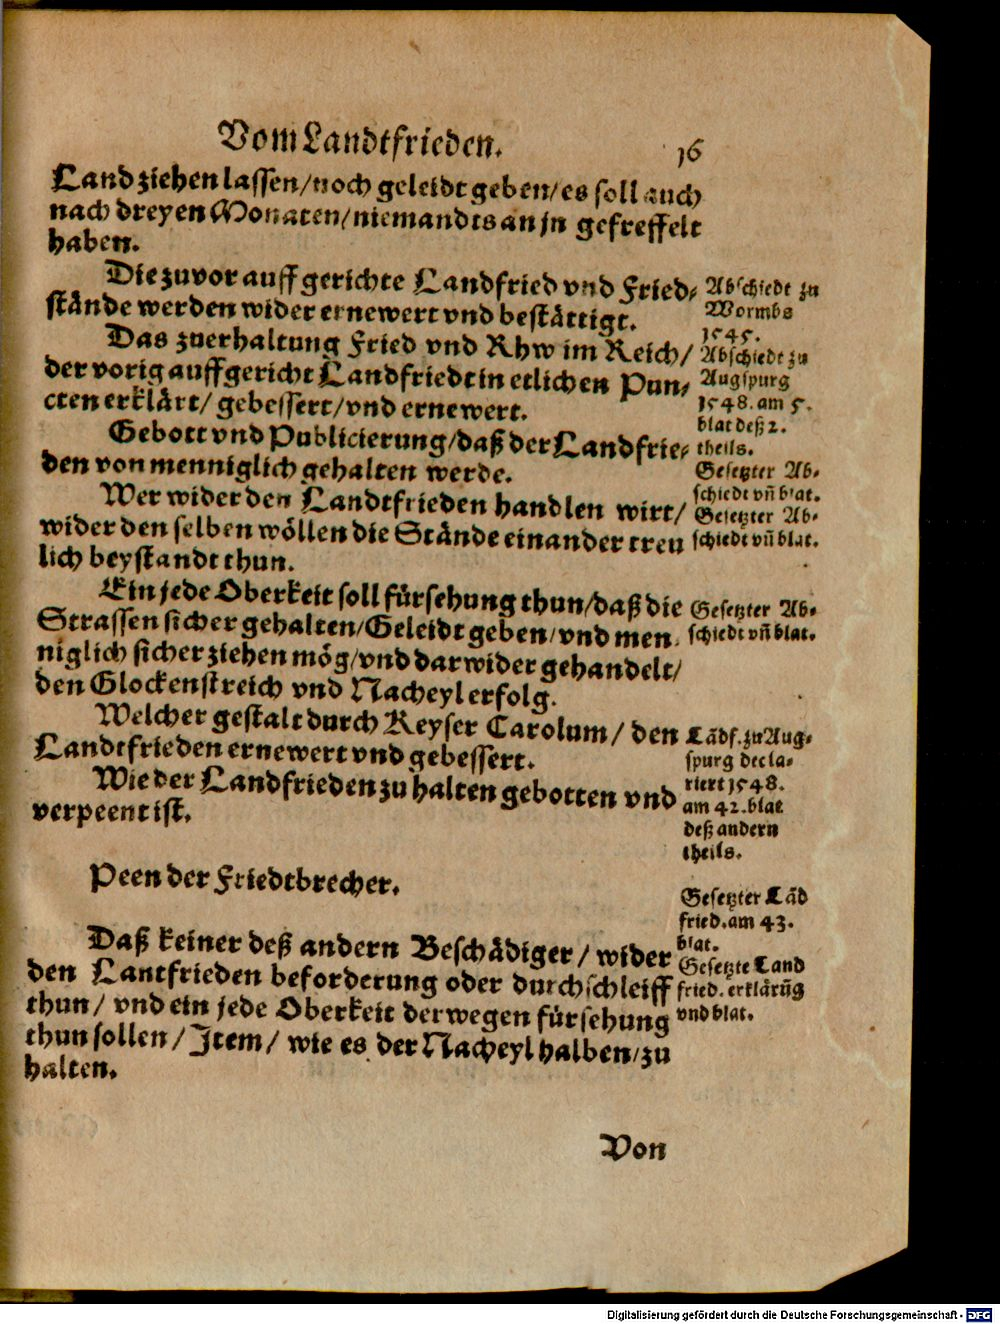 Vom Landtfrieden. 16
Land ziehen lassen/noch geleidt geben/es soll auch
nach dreyen Monaten/niemandts an jn gefreffelt
haben.
Die zuvor auffgerichte Landfried vnd Fried-
stånde werden wider ernewert vnd beståttigt.
Abschiedt zu
Wormbs
1545.
Das zuerhaltung Fried vnd Rhw im Reich/
der vorig auffgericht Landfriedt in etlichen Pun-
cten erklårt/ gebessert/vnd ernewert.
Abschiedt zu
Augspurg
1548. am 5.
blat deß 2.
theils.
Gebott vnd Publicierung/daß der Landfrie-
den von menniglich gehalten werde.
Gesetzter Ab-
schiedt vñ blat.
Wer wider den Landtfrieden handlen wirt/
wider den selben wöllen die Stånde einander treu
lich beystandt thun.
Gesetzter Ab-
schiedt vñ blat.
Ein jede Oberkeit soll fürsehung thun/daß die
Strassen sicher gehalten/Geleidt geben/vnd men-
niglich sicher ziehen mög/vnd darwider gehandelt/
den Glockenstreich vnd Nacheyl erfolg.
Gesetzter Ab-
schiedt vñ blat.
Welcher gestalt durch Keyser Carolum/ den
Landtfrieden ernewert vnd gebessert.
Wie der Landfrieden zu halten gebotten vnd
verpeent ist.
Lãdf. zu Aug-
spurg decla-
riert 1548.
am 42. blat
deß andern
theils.
Peen der Friedtbrecher.
Gesetzter Lãd
fried. am 43.
blat.
Daß keiner deß andern Beschådiger/ wider
den Lantfrieden beforderung oder durchschleiff
thun/ vnd ein jede Oberkeit derwegen fürsehung
thun sollen/ Item/ wie es der Nacheyl halben/zu
halten.
Gesetzte Land
fried. erklårũg
vnd blat.
Von
Digitalisierung gefördert durch die Deutsche Forschungsgemeinschaft - DFG